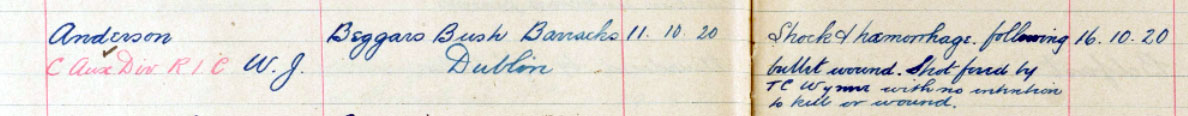 Anderson Beggars Bush Barracks 11. 10. 20 Shock & hæmorrhage. following 16. 10. 20
C Aux Div R I C W. J. Dublin bullet wound. Shot fired by
TC Wynne with no intention
to kill or wound.